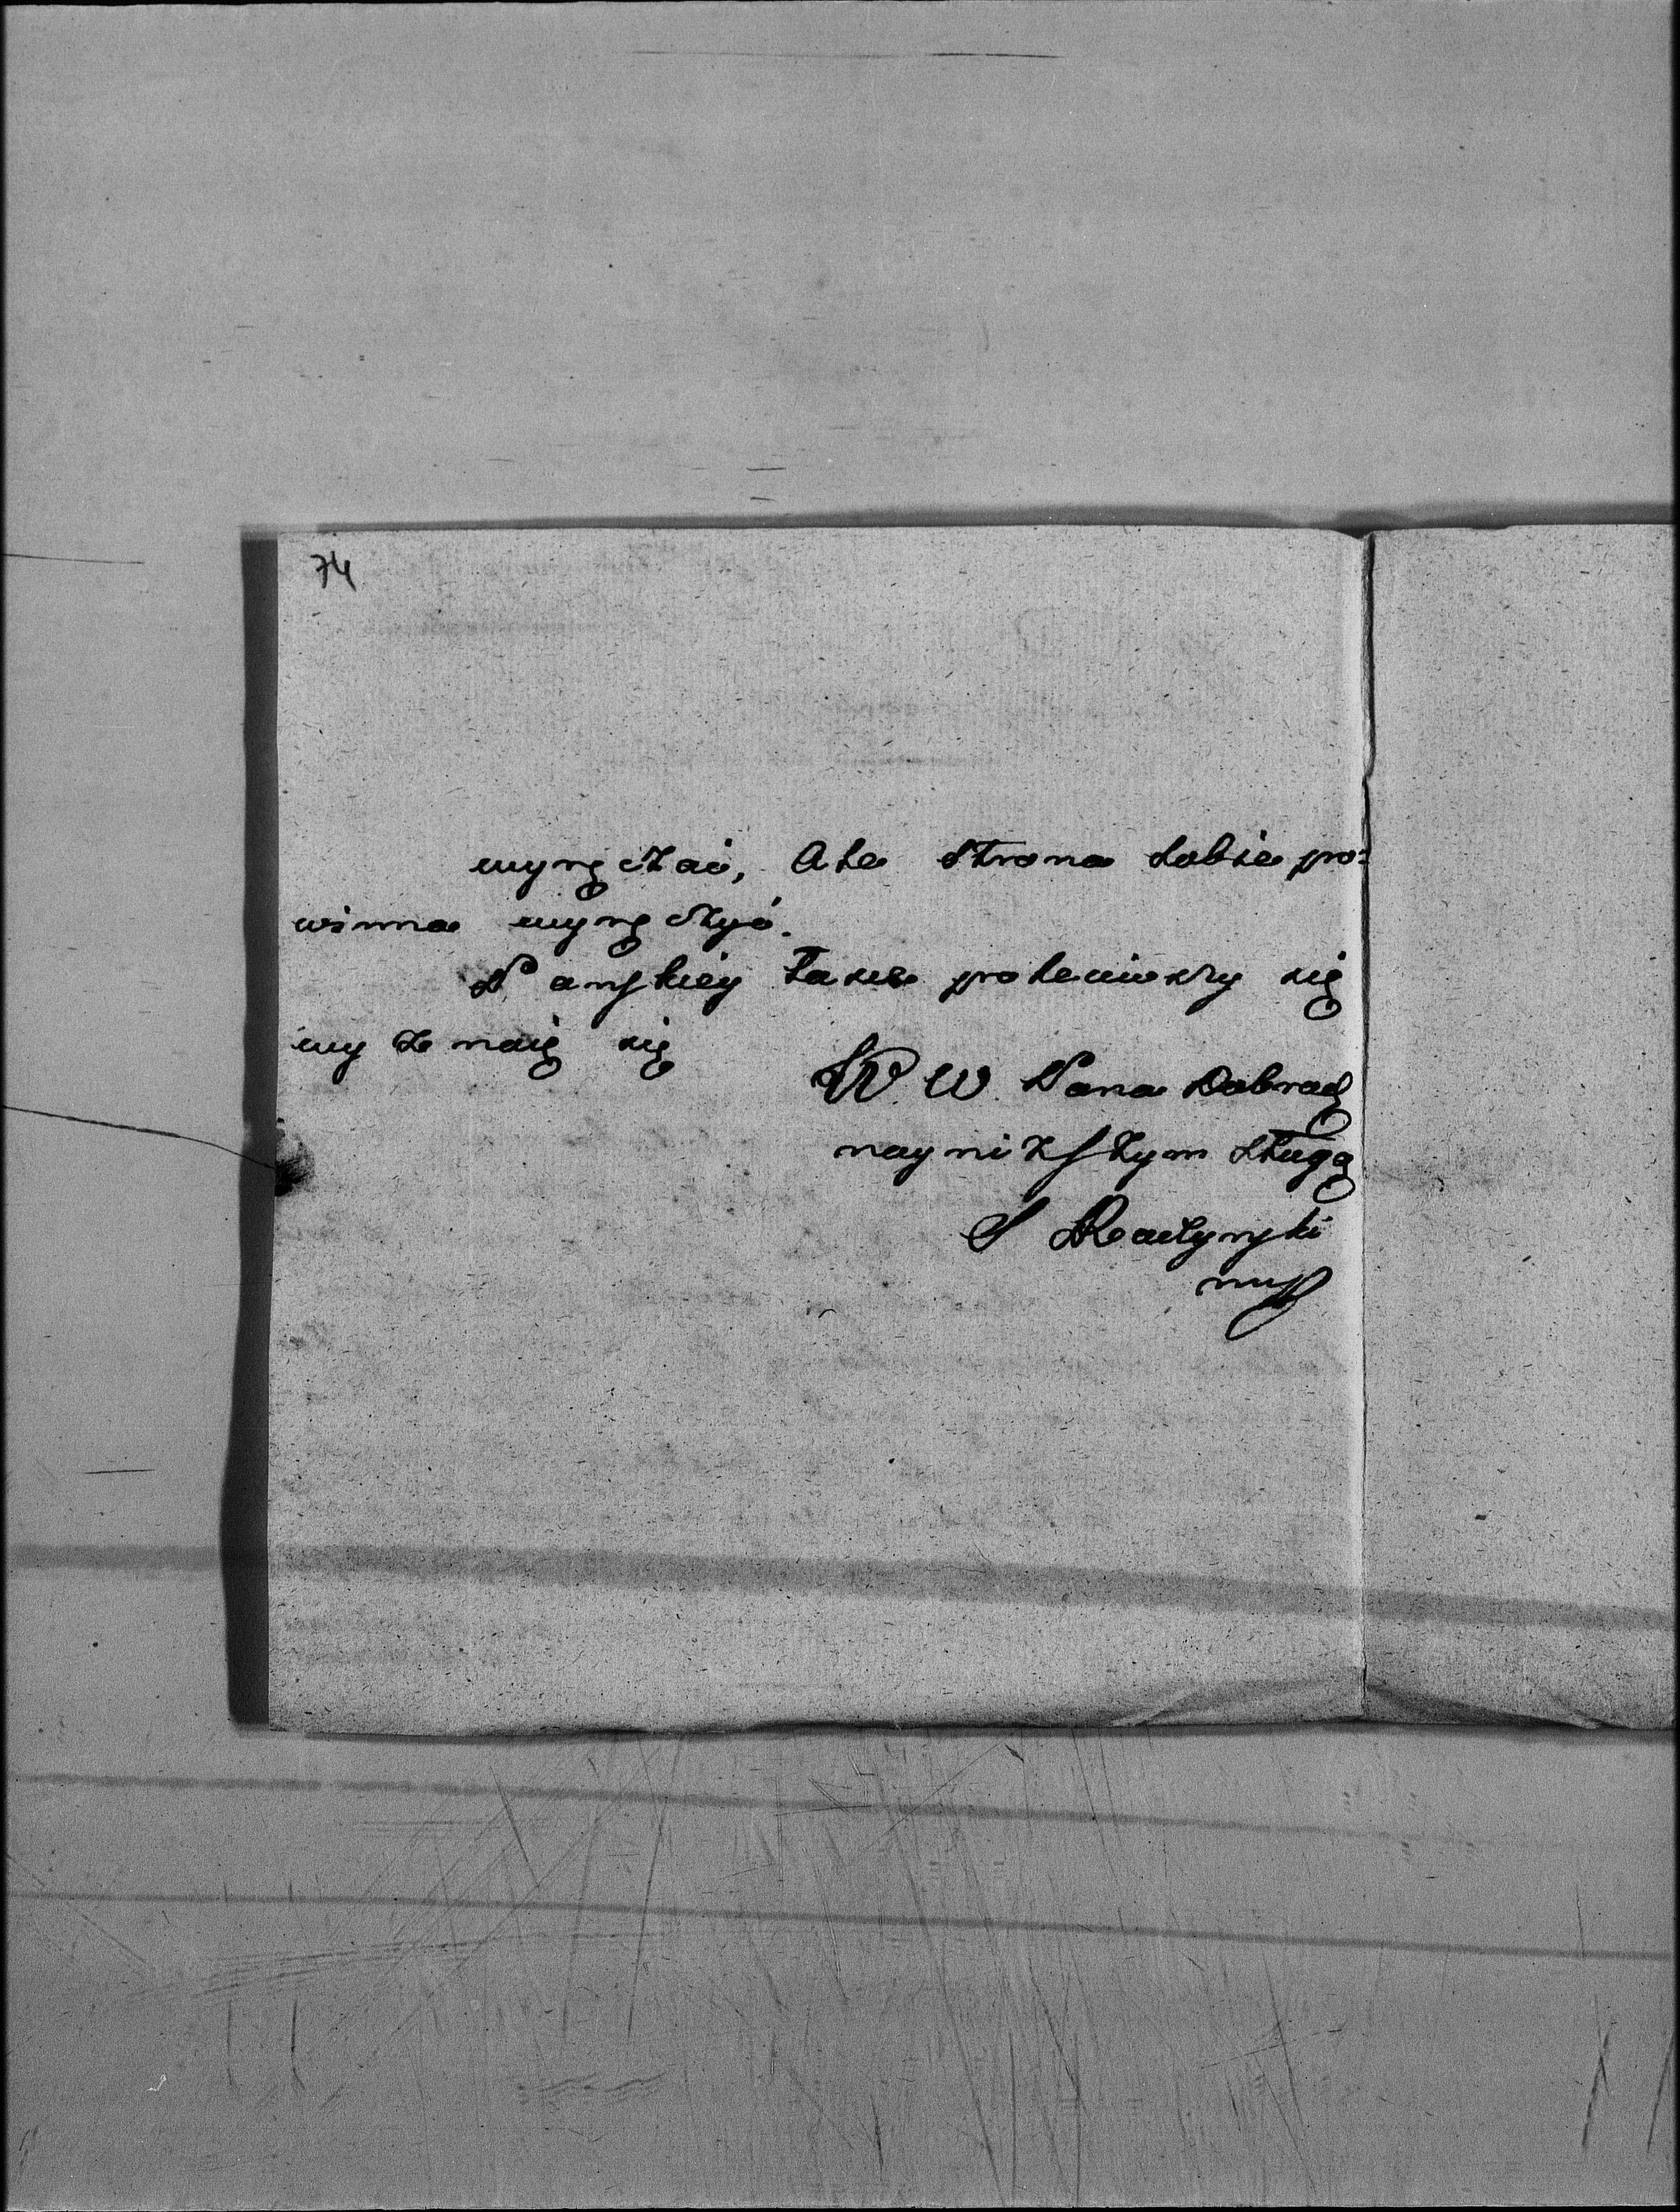 74
wyręczać, Ale Strona sobie po:
winna wyręczyć.
Panſkiéy łasce poleciwszy się
wyznaię się
W. W. Pana Dobrodz
nayniżſzym sługą
S Raczynſki
mp